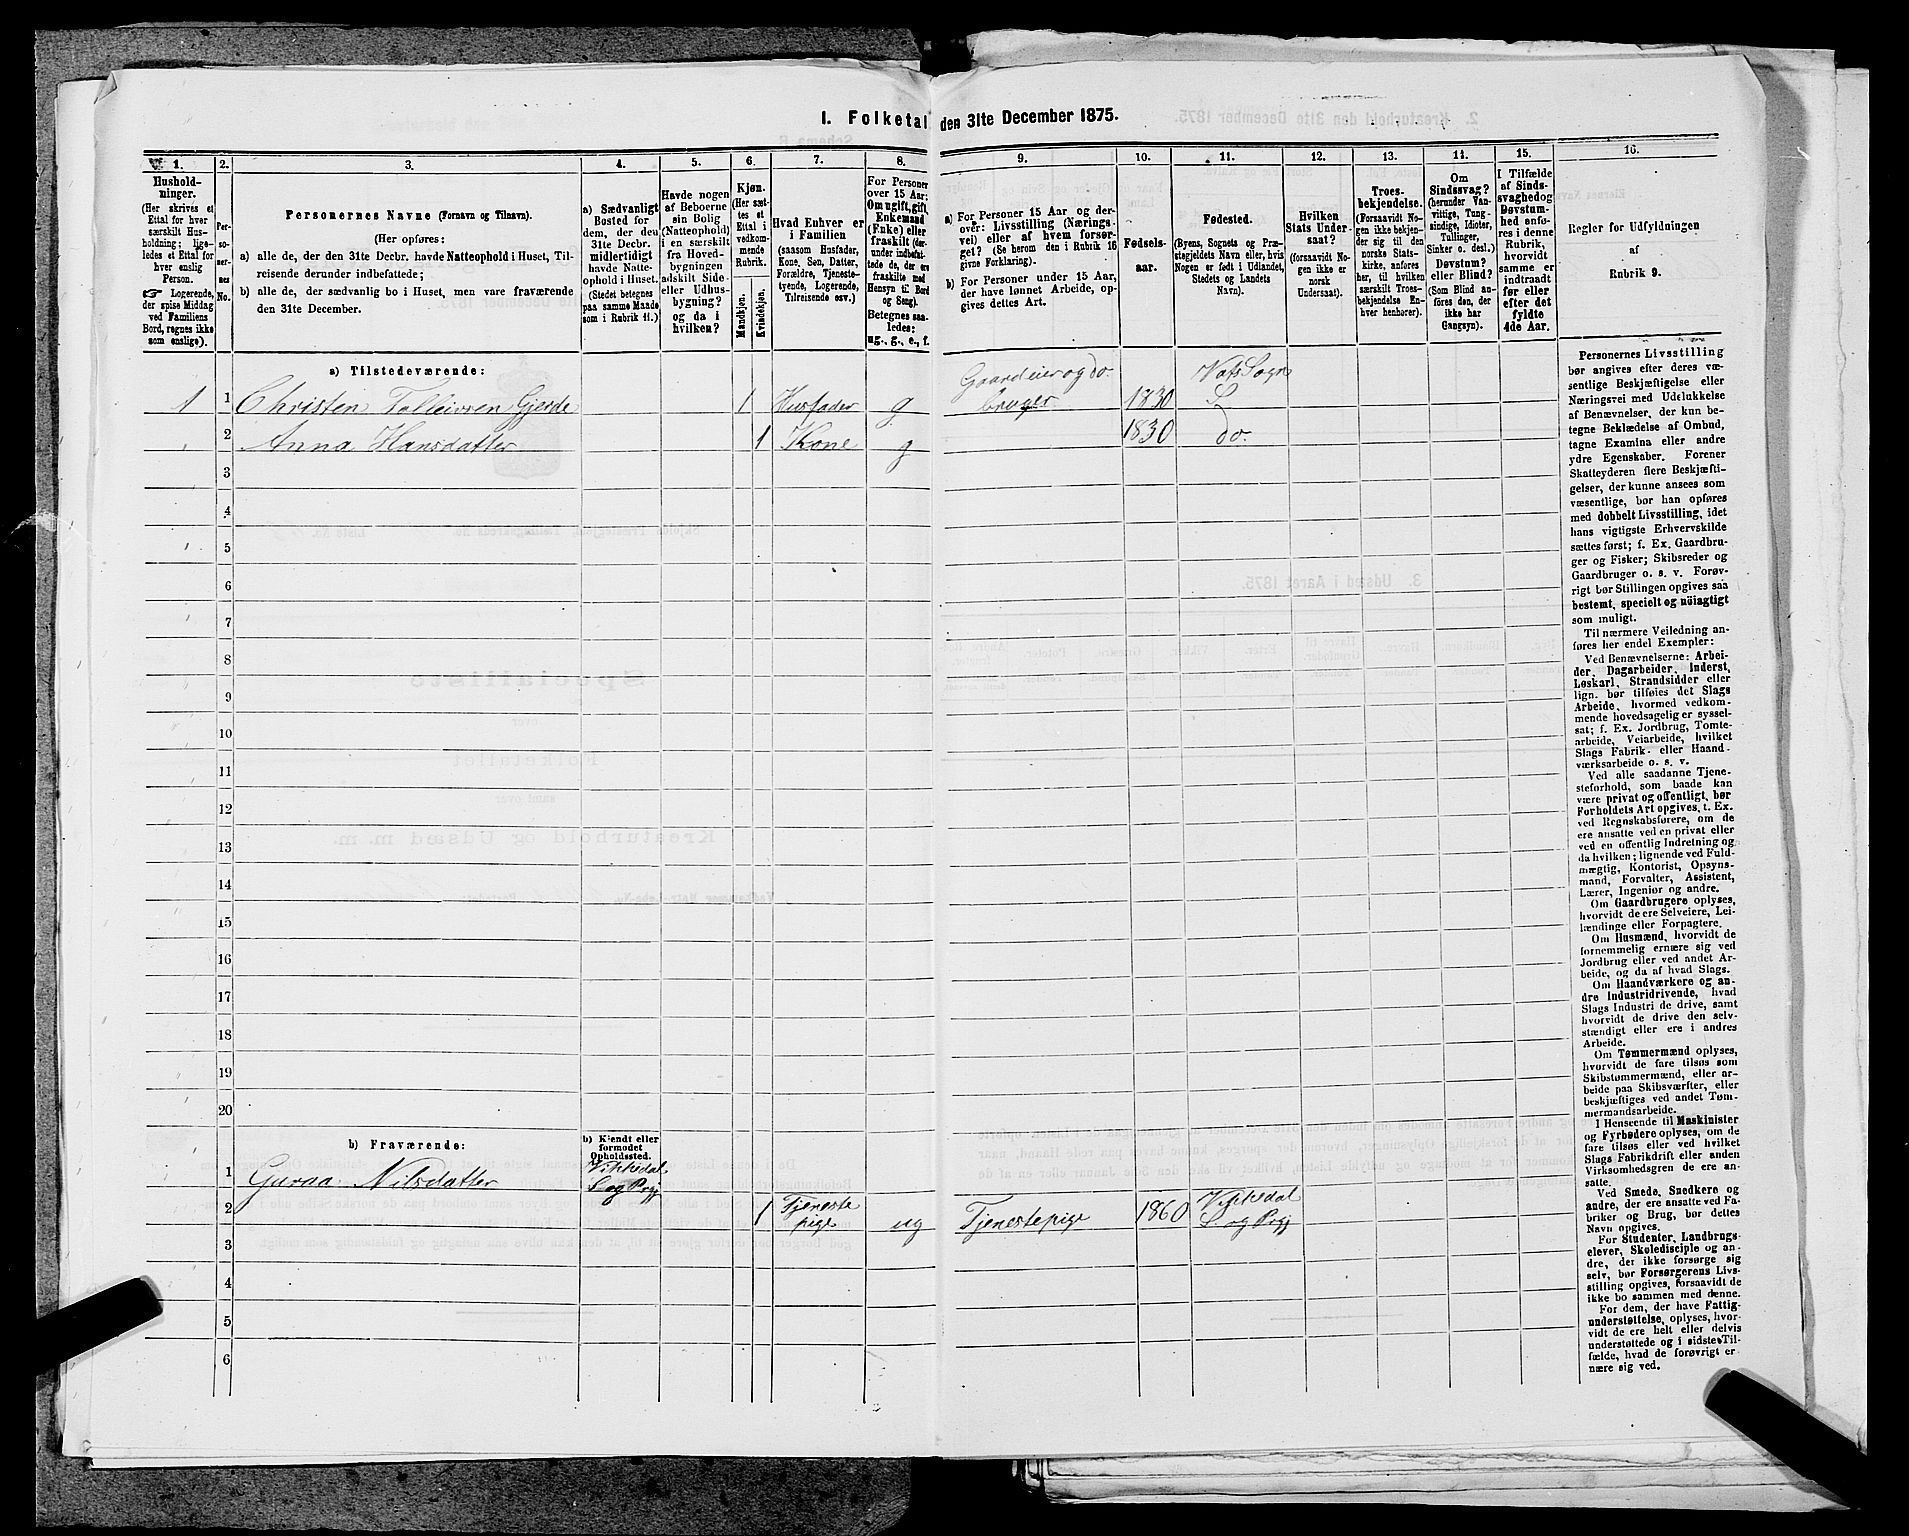 I. Folketal den 31te December 1875.
1. 2. 3. 4. 5. 6. 7. 8. 9. 10. 11. 12. 13. 14. 15. 16.
Hushold-
ninger.
(Her skrives et
Ettal for hver
særskilt Hus-
holdning; lige-
ledes et Ettal for
hver enslig
Person.
☞ Logerende,
der spise Middag
ved Familiens
Bord, regnes ikke
som enslige).
Per-
so-
ner-
nes
No.
Personernes Navne (Fornavn og Tilnavn).
(Her opføres:
a) alle de, der den 31te Decbr. havde Natteophold i Huset, Til-
reisende derunder indbefattede;
b) alle de, der sædvanlig bo i Huset, men vare fraværende
den 31te December.
a) Sædvanligt
Bosted for
dem, der den
31te Decbr.
midlertidigt
havde Natte-
ophold i Huset.
(Stedet betegnes
paa samme Maade
som i Rubrik 11.)
Havde nogen
af Beboerne
sin Bolig
(Natteophold)
i en særskilt
fra Hoved-
bygningen
adskilt Side-
eller Udhus-
bygning?
og da i
hvilken?
Kjøn.
(Her sæt-
tes et
Ettal i
vedkom-
mende
Rubrik.
Mandkjøn.
Kvindekjøn.
Hvad Enhver er
i Familien
(saasom Husfader,
Kone, Søn, Datter,
Forældre, Tjeneste-
tyende, Logerende,
Tilreisende osv.)
For Personer
over 15 Aar:
Om ugift, gift,
Enkemand
(Enke) eller
fraskilt (der-
under indbefat-
tede de, der ere
fraskilte med
Hensyn til Bord
og Seng).
Betegnes saa-
ledes:
ug., g., e., f.
a) For Personer 15 Aar og der-
over: Livsstilling (Nærings-
vei) eller af hvem forsør-
get? (Se herom den i Rubrik 16
givne Forklaring).
b) For Personer under 15 Aar,
der have lønnet Arbeide, op-
gives dettes Art.
Fødsels-
aar.
Fødested.
(Byens, Sognets og Præ-
stegjeldets Navn eller, hvis
Nogen er født i Udlandet,
Stedets og Landets
Navn).
Hvilken
Stats Under-
saat?
(forsaavidt No-
gen ikke er
norsk
Undersaat).
Troes-
bekjendelse.
(Forsaavidt No-
gen ikke bekjen-
der sig til den
norske Stats-
kirke, anføres
her, til hvilken
særskilt Troes-
bekjendelse En-
hver henhører).
Om
Sindssvag?
(herunder Van-
vittige, Tung-
sindige, Idioter,
Tullinger,
Sinker o. desl.)
Døvstum?
eller Blind?
(Som Blind an-
føres den, der
ikke har
Gangsyn).
I Tilfælde
af Sinds-
svaghed og
Døvstum-
hed anfø-
res i denne
Rubrik,
hvorvidt
samme er
indtraadt
før eller
efter det
fyldte
4de Aar.
Regler for Udfyldningen
af
Rubrik 9.
a) Tilstedeværende:
1 1 Christen Tolleivsen Gjerde 1 Husfader g Gaardeier og do. bruger 1830 Vats Sogn S
2 Anna Hansdatter 1 Kone g 1830 do.
3
4
5
6
7
8
9
10
11
12
13
14
15
16
17
18
19
20
b) Fraværende:
b) Kjendt eller
formodet
Opholdssted.
1 Guraa Nilsdatter Vikkedal S og Prgj
2 1 Tjeneste pige ug Tjenestepige 1860 Vikkedal S og Prgj
3
4
5
6
Personernes Livsstilling
bør angives efter deres væ-
sentlige Beskjæftigelse eller
Næringsvei med Udelukkelse
af Benævnelser, der kun be-
tegne Beklædelse af Ombud,
tagne Examina eller andre
ydre Egenskaber. Forener
Skatteyderen flere Beskjæfti-
gelser, der kunne ansees som
væsentlige, bør han opføres
med dobbelt Livsstilling, idet
hans vigtigste Erhvervskilde
sættes først; f. Ex. Gaardbru-
ger og Fisker; Skibsreder og
Gaardbruger o. s. v. Forøv-
rigt bør Stillingen opgives saa
bestemt, specielt og nøiagtigt
som muligt.
Til nærmere Veiledning an-
føres her endel Exempler:
Ved Benævnelserne: Arbei-
der, Dagarbeider, Inderst,
Løskarl, Strandsidder eller
lign. bør tilføies det Slags
Arbeide, hvormed vedkom-
mende hovedsagelig er syssel-
sat; f. Ex. Jordbrug, Tomte-
arbeide, Veiarbeide, hvilket
Slags Fabrik- eller Haand-
værksarbeide o. s. v.
Ved alle saadanne Tjene-
steforhold, som baade kan
være privat og offentligt, bør
Forholdets Art opgives, t. Ex.
ved Regnskabsførere, om de
ere ansatte ved en privat eller
ved en offentlig Indretning og
da hvilken; lignende ved Fuld-
mægtig, Kontorist, Opsyns-
mand, Forvalter, Assistent,
Lærer, Ingeniør og andre.
Om Gaardbrugere oplyses,
hvorvidt de ere Selveiere, Lei-
lændinge eller Forpagtere.
Om Husmænd, hvorvidt de
fornemmelig ernære sig ved
Jordbrug eller ved andet Ar-
beide, og da af hvad Slags.
Om Haandværkere og an-
dre Industridrivende, hvad
Slags Industri de drive, samt
hvorvidt de drive den selv-
stændigt eller ere i andres
Arbeide.
Om Tømmermænd oplyses,
hvorvidt de fare tilsøs som
Skibstømmermænd, eller ar-
beide paa Skibsværfter, eller
beskjæftiges ved andet Tøm-
mermandsarbeide.
I Henseende til Maskinister
og Fyrbødere oplyses, om de
fare tilsøs eller ved hvilket
Slags Fabrikdrift eller anden
Virksomhedsgren de ere an-
satte.
Ved Smede, Snedkere og
andre, der ere ansatte ved Fa-
briker og Brug, bør dettes
Navn opgives.
For Studenter, Landbrugs-
elever, Skoledisciple og an-
dre, der ikke forsørge sig
selv, bør Forsørgerens Livs-
stilling opgives, forsaavidt de
ikke bo sammen med denne.
For dem, der have Fattig-
understøttelse, oplyses, hvor-
vidt de ere helt eller delvis
understøttede og i sidste Til-
fælde, hvad de forøvrigt er-
nære sig ved.